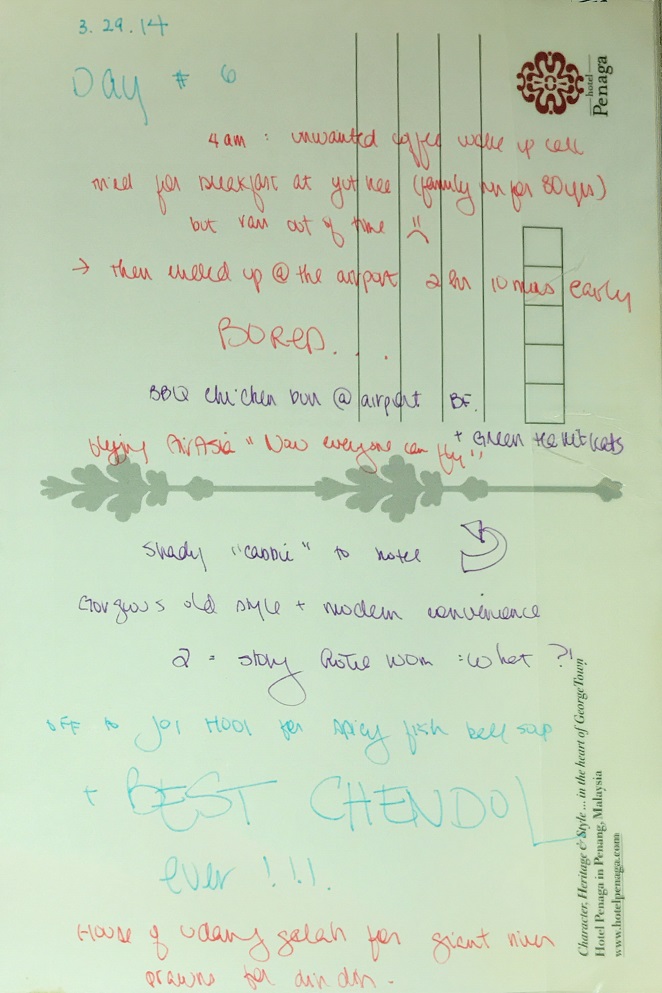 3.29.14
Day # 6
hotel
Penaga
4am : unwanted coffee wake up call
tried for breakfast at yut kee (family run for 80 yrs)
but ran out of time
→ then ended up @ the airport 2 hr 10 mins early
BORED. . . .
BBQ chicken bun @ airport BF.
+ Green tea kitkats
flying AirAsia "Now everyone can fly"
shady "cabbie" to hotel
Gorgeous old style + modern convenience
2 - story hotel room : what ?!
off to Joi Hooi for spicy fish ball soup
+ BEST CHENDOL
ever !!!.
House of Udang galah for giant river
prawns for din din.
Character, Heritage & Style ... in the heart of GeorgeTown
Hotel Penaga in Penang, Malaysia
www.hotelpenaga.com